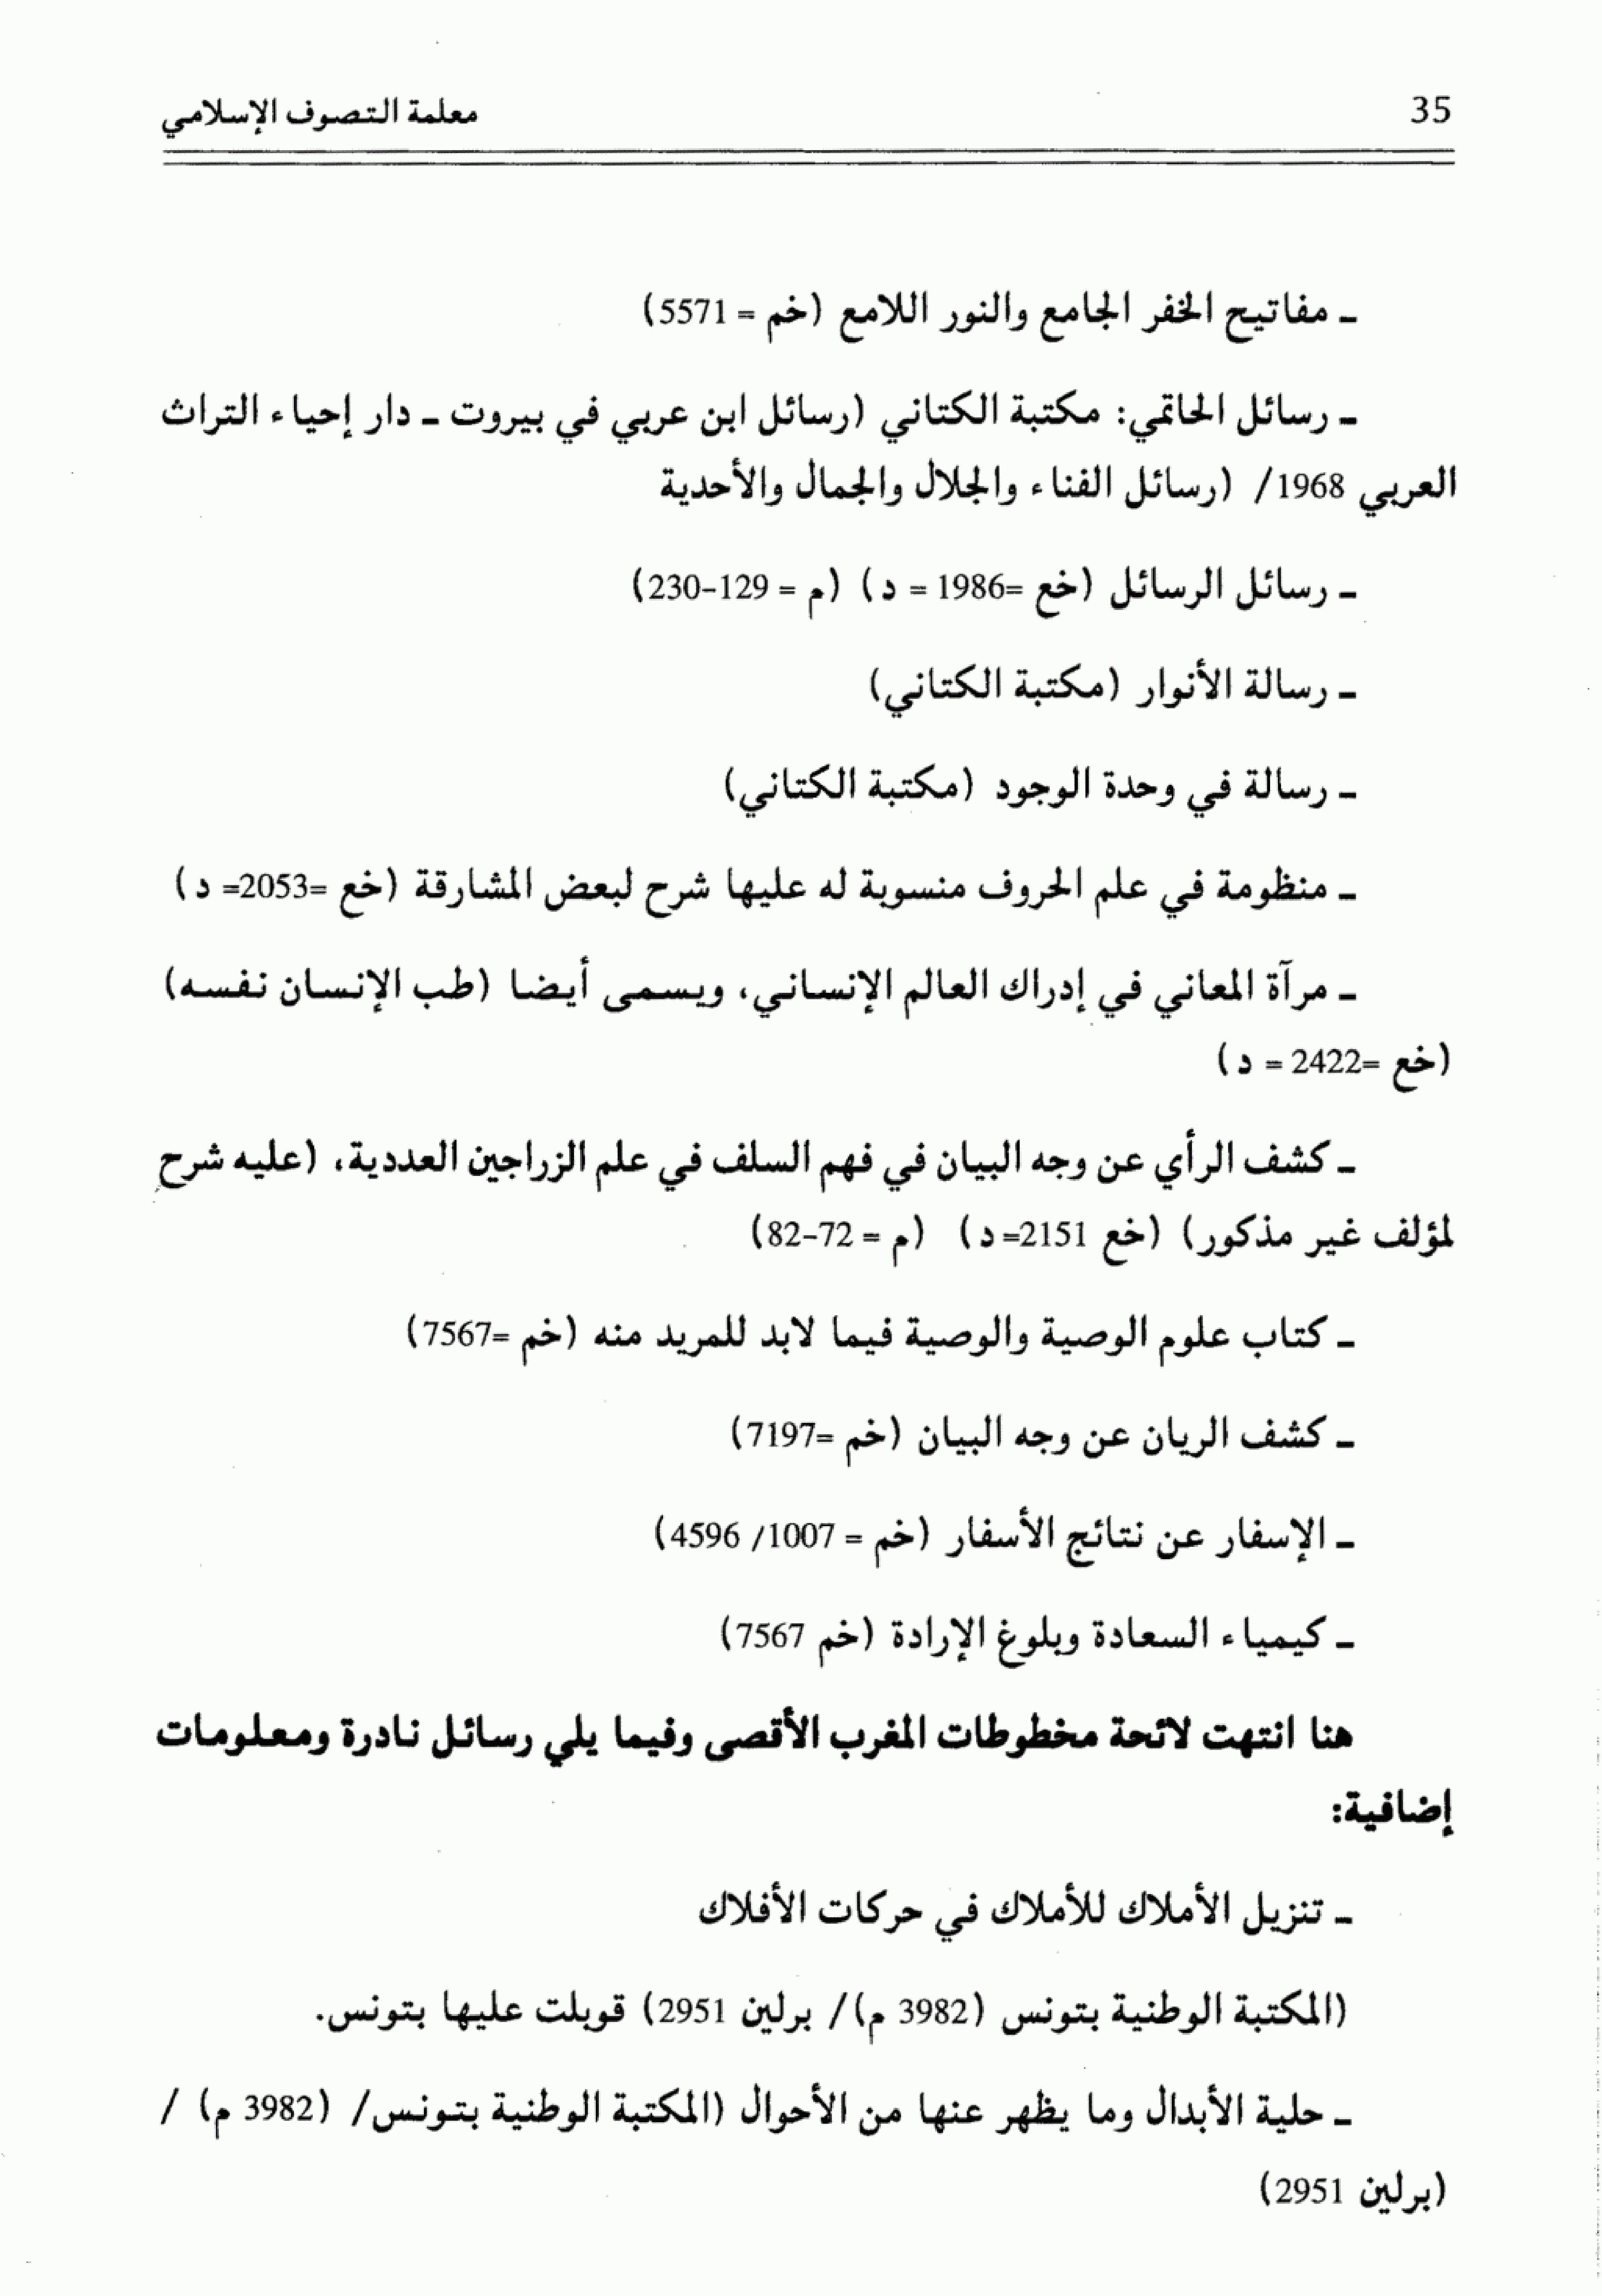 35
معلمة التصوف الإسلامي
ـ مفاتيح الخفر الجامع والنور اللامع (خم = 5571)
ـ رسائل الحاتمي: مكتبة الكتاني (رسائل ابن عربي في بيروت ـ دار إحياء التراث
العربي 1968/ (رسائل الفناء والجلال والجمال والأحدية
ـ رسائل الرسائل (خع =1986 = د) (م = 129-230)
ـ رسالة الأنوار (مكتبة الكتاني)
ـ رسالة في وحدة الوجود (مكتبة الكتاني)
ـ منظومة في علم الحروف منسوبة له عليها شرح لبعض المشارقة (خع =2053= د)
ـ مرآة المعاني في إدراك العالم الإنساني، ويسمى أيضا (طب الإنسان نفسه)
(خع =2422 = د)
ـ كشف الرأي عن وجه البيان في فهم السلف في علم الزراجين العددية، (عليه شرح
لمؤلف غير مذكور) (خع 2151= د) (م = 72-82)
ـ كتاب علوم الوصية والوصية فيما لابد للمريد منه (خم =7567)
ـ كشف الريان عن وجه البيان (خم =7197)
ـ الإسفار عن نتائج الأسفار (خم = 1007/ 4596)
ـ كيمياء السعادة وبلوغ الإرادة (خم 7567)
هنا انتهت لائحة مخطوطات المغرب الأقصى وفيما يلي رسائل نادرة ومعلومات
إضافية:
ـ تنزيل الأملاك للأملاك في حركات الأفلاك
(المكتبة الوطنية بتونس (3982 م)/ برلين 2951) قوبلت عليها بتونس.
ـ حلية الأبدال وما يظهر عنها من الأحوال (المكتبة الوطنية بتونس/ (3982 م) /
(برلين 2951)